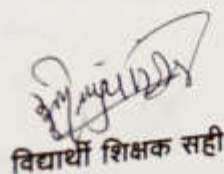 विद्यार्थी शिक्षक सही